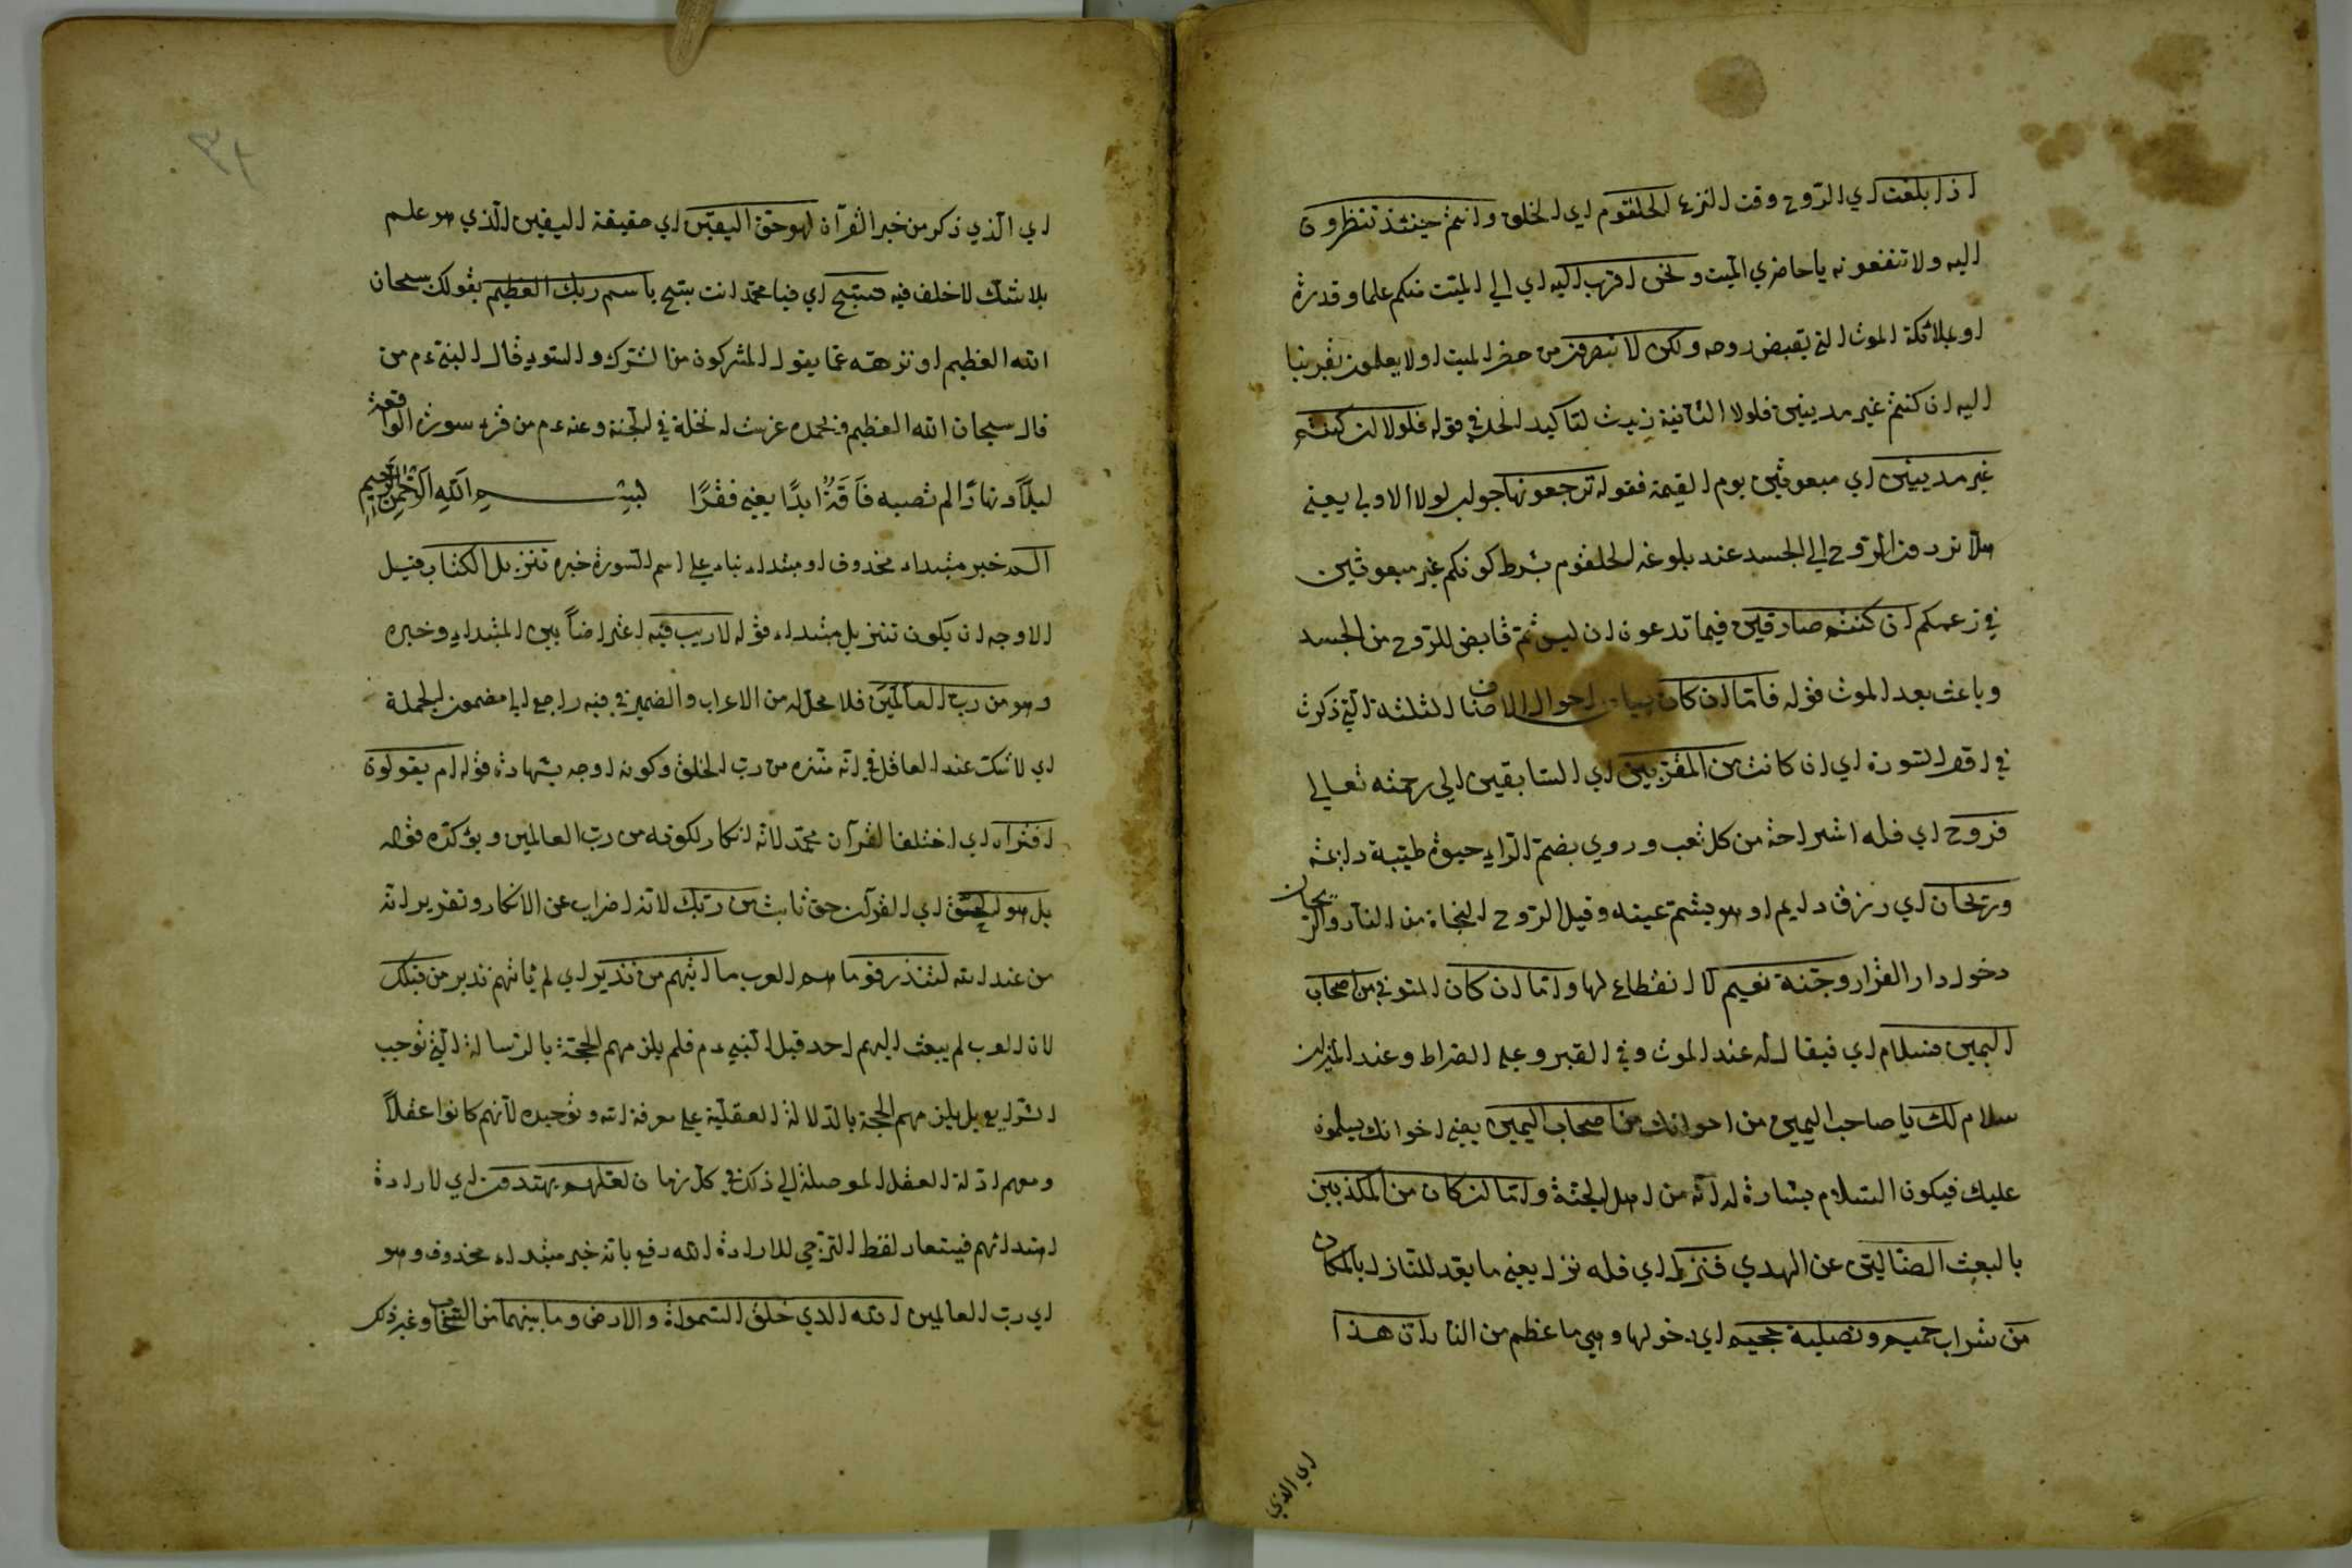 اذا بلغت اي الرّوح وقت النزع الحلقوم اي الحلق وانتم حينئذ تنظرون
اليه ولا تنفعونه يا حاضري الميت ونحن اقرب اليه اي الي الميّت منكم علما وقدرة
او بملائكة الموت التي يقبض روحه ولكن لا تبصرون من حضر الميت او لا يعلمون تقربنا
اليه ان كنتم غير مدينين فلولا الثانية زيدت لتاكيد الحث في قوله فلولا ان كنتم
غير مدينين اي مبعوثين يوم القيمة فقوله ترجعونها جواب لولا الاولي يعني
هلّا تردون الرّوح الي الجسد عند بلوغه الحلقوم بشرط كونكم غير مبعوثين
في زعمكم ان كنتم صادقين فيما تدعون ان ليس ثمّ قابض للرّوح من الجسد
وباعث بعد الموت قوله فامّا ان كان بيان احوال الاصناف الثلثة الّتي ذكرت
في اوّل السّورة اي ان كانت من المقرّبين اي السّابقين الي رحمته تعالي
فروح اي فله استراحة من كل تعب وروي بضمّ الرّاء حيوة طيّبة دائمة
وريحان اي رزق دايم او هو يشمّ عينه وقيل الرّوح النجاة من النّار والرّيحان
دخول دار القرار وجنّة نعيم لا انقطاع لها وامّا ان كان المتوفي من اصحاب
اليمين فسلام اي فيقال له عند الموت وفي القبر وعلي الصّراط وعند الميزان
سلام لك يا صاحب اليمين من اخوانك من اصحاب اليمين يعني اخوانك يسلمون
عليك فيكون السّلام بشارة له انّه من اهل الجنّة وامّا ان كان من المكذبين
بالبعث الضّالّين عن الهدي فنزل اي فله نزل يعني ما يعد للنّازل بالمكان
من شراب حميم وتصلية جحيم اي دخولها وهي ما عظم من النار انّ هذا
اي الذي
اي الّذي ذكر من خبر القرآن لهو حقّ اليقين اي حقيقة اليقين الّذي هو علم
بلا شكّ لا خلف فيه فسبّح اي فيا محمّد انت سبّح باسم ربّك العظيم بقولك سبحان
الله العظيم او نزهه عمّا يقول المشركون من الشّرك والسّوء قال النبيّ ءم من
قال سبحان الله العظيم وبحمده غرست له نخلة في الجنّة وعنه ءم من قرء سورة الواقعة
ليلًا ونهارًا لم تصيبه فاقةٌ ابدًا يعني فقرًا بسم الله الرّحمن الرّحيم
الم خبر مبتداء محذوف او مبتداء بناء علي اسم السّورة خبره تنزيل الكتاب قيل
الاوجه ان يكون تنزيل مبتداء قوله لا ريب فيه اعتراضاً بين المبتداء وخبره
وهو من ربّ العالمين فلا محلّ له من الاعراب والضمير في فيه راجع الي مضمون الجملة
اي لا شكّ عند العاقل في انّه منزه من ربّ الخلق وكونه اوجه بشهادة قوله ام يقولون
افتراه اي اختلف القرآن محمّد لانّه انكار لكونه من ربّ العالمين ويؤكّده قوله
بل هو الحقّ اي القرآن حق ثابت من ربّك لانّه اضراب عن الانكار وتقرير انّه
من عند الله لتنذر قوما هم العرب ما اتيهم من نذير اي لم ياتهم نذير من قبلك
لان العرب لم يبعث اليهم احد قبل النّبيّ ءم فلم يلزمهم الحجّة بالرّسالة الّتي توجب
الشّرايع بل يلزمهم الحجة بالدّلالة العقليّة علي معرفة الله وتوحيده لانّهم كانوا عقلاً
ومعهم ادّلة العقل الموصلة الي ذلك في كلّ زمان لعلّهم يهتدون اي لارادة
اهتدائهم فيستعار لفظ التّرجي للارادة الله رفع بانّه خبر مبتداء محذوف وهو
اي ربّ العالمين الله الذي خلق السّموات والارض وما بينهما من السّحاب وغير ذلك